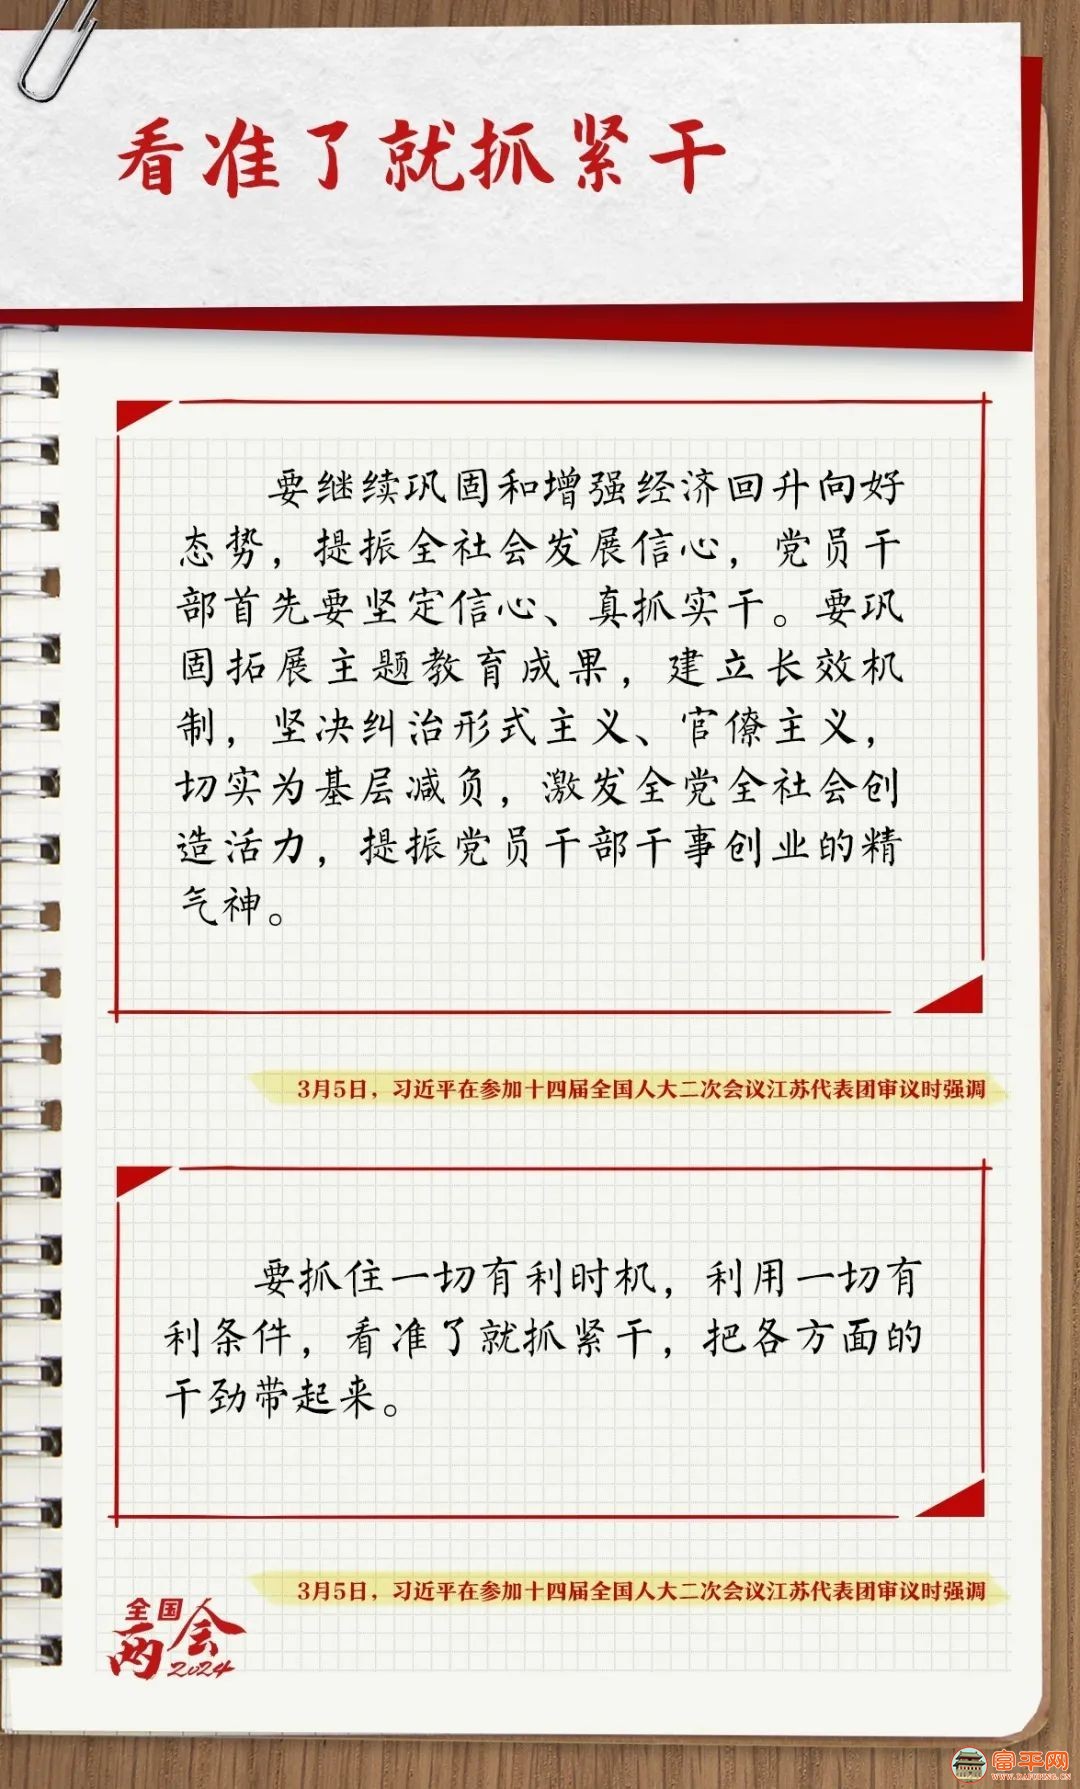 看准了就抓紧干
要继续巩固和增强经济回升向好
态势，提振全社会发展信心，党员干
部首先要坚定信心、真抓实干。要巩
固拓展主题教育成果，建立长效机
制，坚决纠治形式主义、官僚主义，
切实为基层减负，激发全党全社会创
造活力，提振党员干部干事创业的精
气神。
3月5日，习近平在参加十四届全国人大二次会议江苏代表团审议时强调
要抓住一切有利时机，利用一切有
利条件，看准了就抓紧干，把各方面的
干劲带起来。
3月5日，习近平在参加十四届全国人大二次会议江苏代表团审议时强调
全国
两会
2024
富平网
WWW.DAFUPING.CN